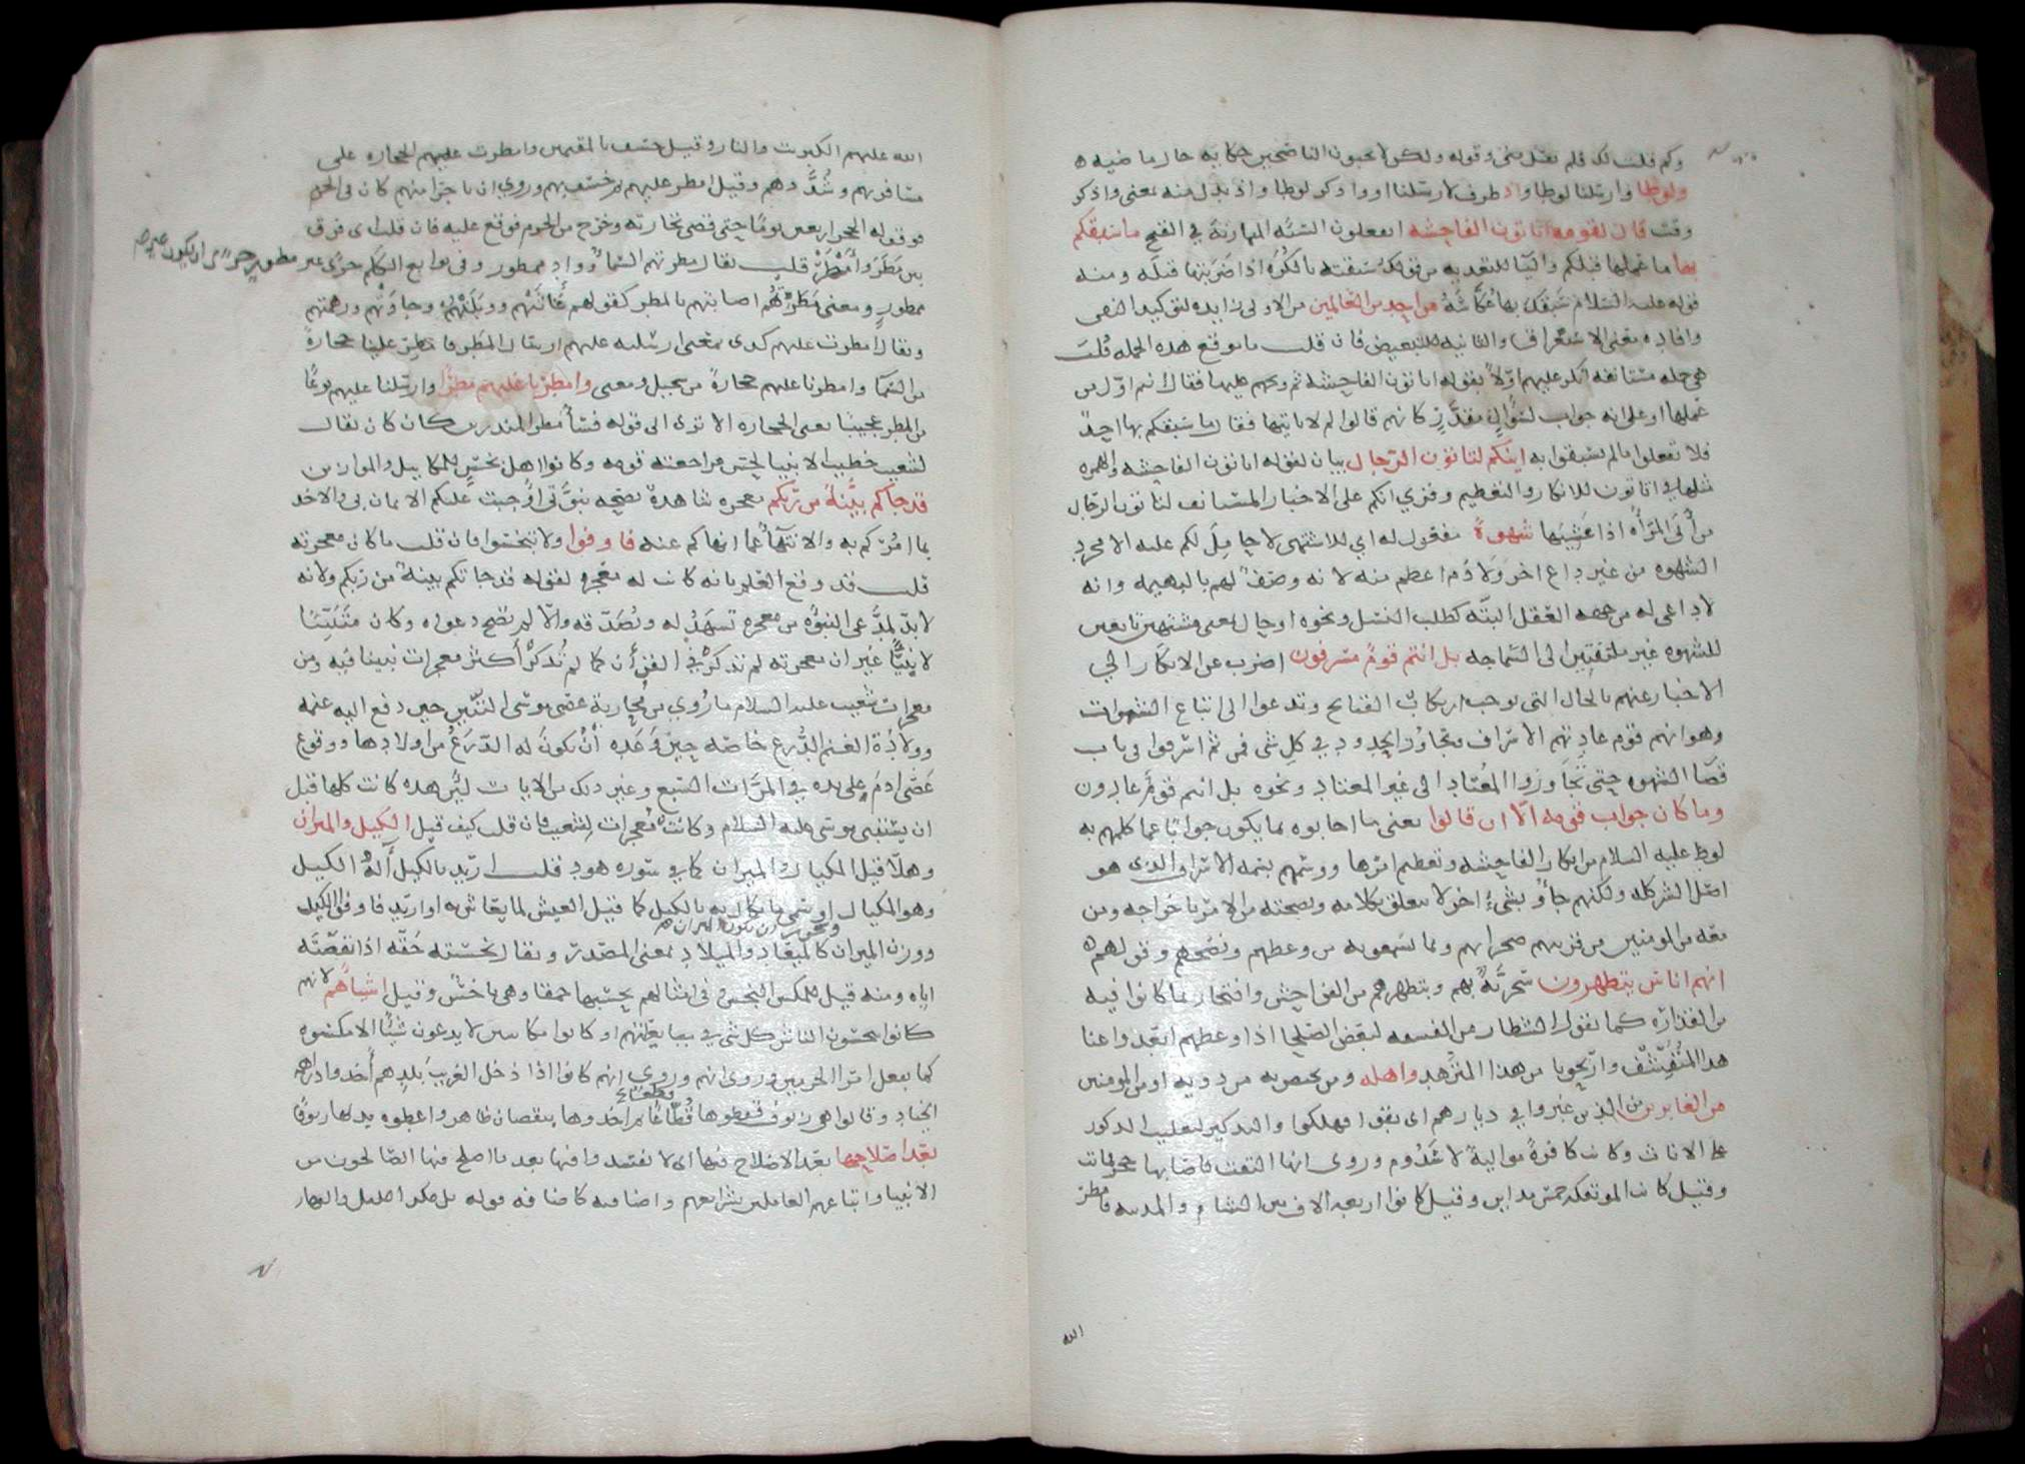 وكم قلت لك فلم تقبل مني وقوله ولكن لا تحبون الناصحين حكاية حال ماضيه
ولوطا وارسلنا لوطا واذ ظرف لارسلنا او واذكر لوطا واذ بدل منه بمعنى واذكر
وقت قال لقومه اتاتون الفاحشه اتفعلون السيه المتماديه في القبح ما سبقكم
بها ما عملها قبلكم والبا للتعديه من قولك سبقته بالكره اذا ضربتها قبله ومنه
قوله عليه السلام سبقك بها عكاشة من احد من العالمين من الاولى زايده لتوكيد النفي
وافاده معنى الاستغراق والثانيه للتبعيض فان قلت ما موقع هذه الجمله قلت
هي جمله مستانفه انكر عليهم اولا بقوله اتاتون الفاحشه ثم وبخهم عليها فقال انتم اول من
عملها او على انه جواب لسؤال مقدر كانهم قالوا لم لا ناتيها فقال ما سبقكم بها احد
فلا تفعلوا ما لم تسبقوا به اينكم لتاتون الرجال بيان لقوله اتاتون الفاحشه والهمزه
مثلها في اتاتون للانكار والتعظيم وقري انكم على الاخبار المستانف لتاتون الرجال
من اتى المرأة اذا غشيها شهوة مفعول له اي للاشتهى لا حامل لكم عليه الا مجرد
الشهوه من غير داع اخر ولا ذم اعظم منه لانه وصف لهم بالبهيميه وانه
لا داعي له من جهه العقل البته كطلب النسل ونحوه او حال بمعنى مشتهين تابعين
للشهوه غير ملتفتين الى السماجه بل انتم قوم مسرفون اضرب عن الانكار الى
الاخبار عنهم بالحال التي توجب ارتكاب القبايح وتدعوا الى اتباع الشهوات
وهو انهم قوم عادتهم الاسراف وتجاوز الحدود في كل شي فمن ثم اسرفوا في باب
قضا الشهوه حتى تجاوزوا المعتاد الى غير المعتاد ونحوه بل انتم قوم عادون
وما كان جواب قومه الا ان قالوا يعني ما اجابوه بما يكون جوابا عما كلمهم به
لوط عليه السلام من انكار الفاحشه وتعظيم امرها ووسمهم بسمه الاسراف الذي هو
اصل الشر كله ولكنهم جاؤ بشيء اخر لا يتعلق بكلامه ونصيحته من الامر باخراجه ومن
معه من المومنين من قريتهم ضجرا بهم وبما يسمعونه من وعظهم ونصحهم وقولهم
انهم اناس يتطهرون سخرية بهم وبتطهرهم من الفواحش وافتخار بما كانوا فيه
من القذاره كما يقول الشطار من الفسقه لبعض الصلحا اذا وعظهم ابعدوا عنا
هذا المتقشف واريحونا من هذا المتزهد واهله ومن يختص به من ذويه او من المومنين
من الغابرين من الذين غبروا في ديارهم اى بقوا فهلكوا والتذكير لتغليب الذكور
على الاناث وكانت كافرة موالية لاهل سدوم وروى انها التفتت فاصابها حجر فماتت
وقيل كانت الموتفكه خمس مداين وقيل كانوا اربعه الاف بين الشام والمدينه فامطر
الله
الله عليهم الكبريت والنار وقيل خسف بالمقيمين وامطرت عليهم الحجاره على
مسافريهم وشذاذهم وقيل امطر عليهم ثم خسف بهم وروي ان تاجرا منهم كان في الحرم
فوقف له الحجر اربعين يوما حتى قضى تجارته وخرج من الحرم فوقع عليه فان قلت اى فرق
بين مطر وامطر قلت يقال مطرتهم السماء وواد ممطور وفي نوابغ الكلم حرى غير
ممطور ومعنى مطرتهم اصابتهم بالمطر كقولهم غاثتهم ووبلتهم وجادتهم ورهمتهم
ويقال امطرت عليهم كذى بمعنى ارسلته عليهم ارسال المطر فامطر علينا حجارة
من السما وامطرنا عليهم حجارة من سجيل ومعنى وامطرنا عليهم مطرا وارسلنا عليهم نوعا
من المطر عجيبا يعني الحجاره الا ترى الى قوله فسأ مطر المنذرين كان يقال
لشعيب خطيب الانبيا لحسن مراجعته قومه وكانوا اهل بخس للمكاييل والموازين
قد جاتكم بينة من ربكم معجزه شاهدة بصحه نبوتي اوجبت عليكم الايمان بي والاخذ
بما امركم به والانتهاء عما انهاكم عنه فاوفوا ولا تبخسوا فان قلت ما كان معجزته
قلت قد وقع العلم بانه كانت له معجزه لقوله قد جاتكم بينة من ربكم ولانه
لا بد لمدعي النبوه من معجزه تشهد له وتصدقه والا لم تصح دعواه وكان متنبيا
لا نبيا غير ان معجزته لم تذكر في القرآن كما لم تذكر اكثر معجزات نبينا فيه ومن
معجزات شعيب عليه السلام ما روي من محاربة عصى موسى التنين حين دفع اليه غنمه
وولادة الغنم الدرع خاصه حين وعده أن يكون له الدرع من اولادها ووقوع
عصى ادم على يده في المرات السبع وغير ذلك من الايات لأن هذه كانت كلها قبل
ان يستنبى موسى عليه السلام وكانت معجزات لشعيب فان قلت كيف قيل الكيل والميزان
وهلا قيل المكيال والميزان كما في سوره هود قلت اريد بالكيل آلة الكيل
وهو المكيال او سمي ما يكال به بالكيل كما قيل العيش لما يعاش به او اريد فاوفوا الكيل
ووزن الميزان ويجوز ان يكون الميزان كالميعاد والميلاد بمعنى المصدر ويقال بخسته حقه اذا نقصته
اياه ومنه قيل للمكس البخس وفي امثالهم تحسبها حمقا وهي باخس وقيل اشياهم لانهم
كانوا يبخسون الناس كل شي في مبايعاتهم او كانوا مكاسين لا يدعون شيا الا مكسوه
كما يفعل امرا الحرمين وروى انهم كانوا اذا دخل الغريب بلدهم أخذوا دراهمه
الجياد وقالوا هي زيوف فقطعوها قطعا ثم اخذوها بنقصان ظاهر واعطوه بدلها زيوفا
بعد اصلاحها بعد الاصلاح فيها اى لا تفسدوا فيها بعد ما اصلح فيها الصالحون من
الانبيا واتباعهم العاملين بشرايعهم واضافته كاضافه قوله بل مكر الليل والنهار